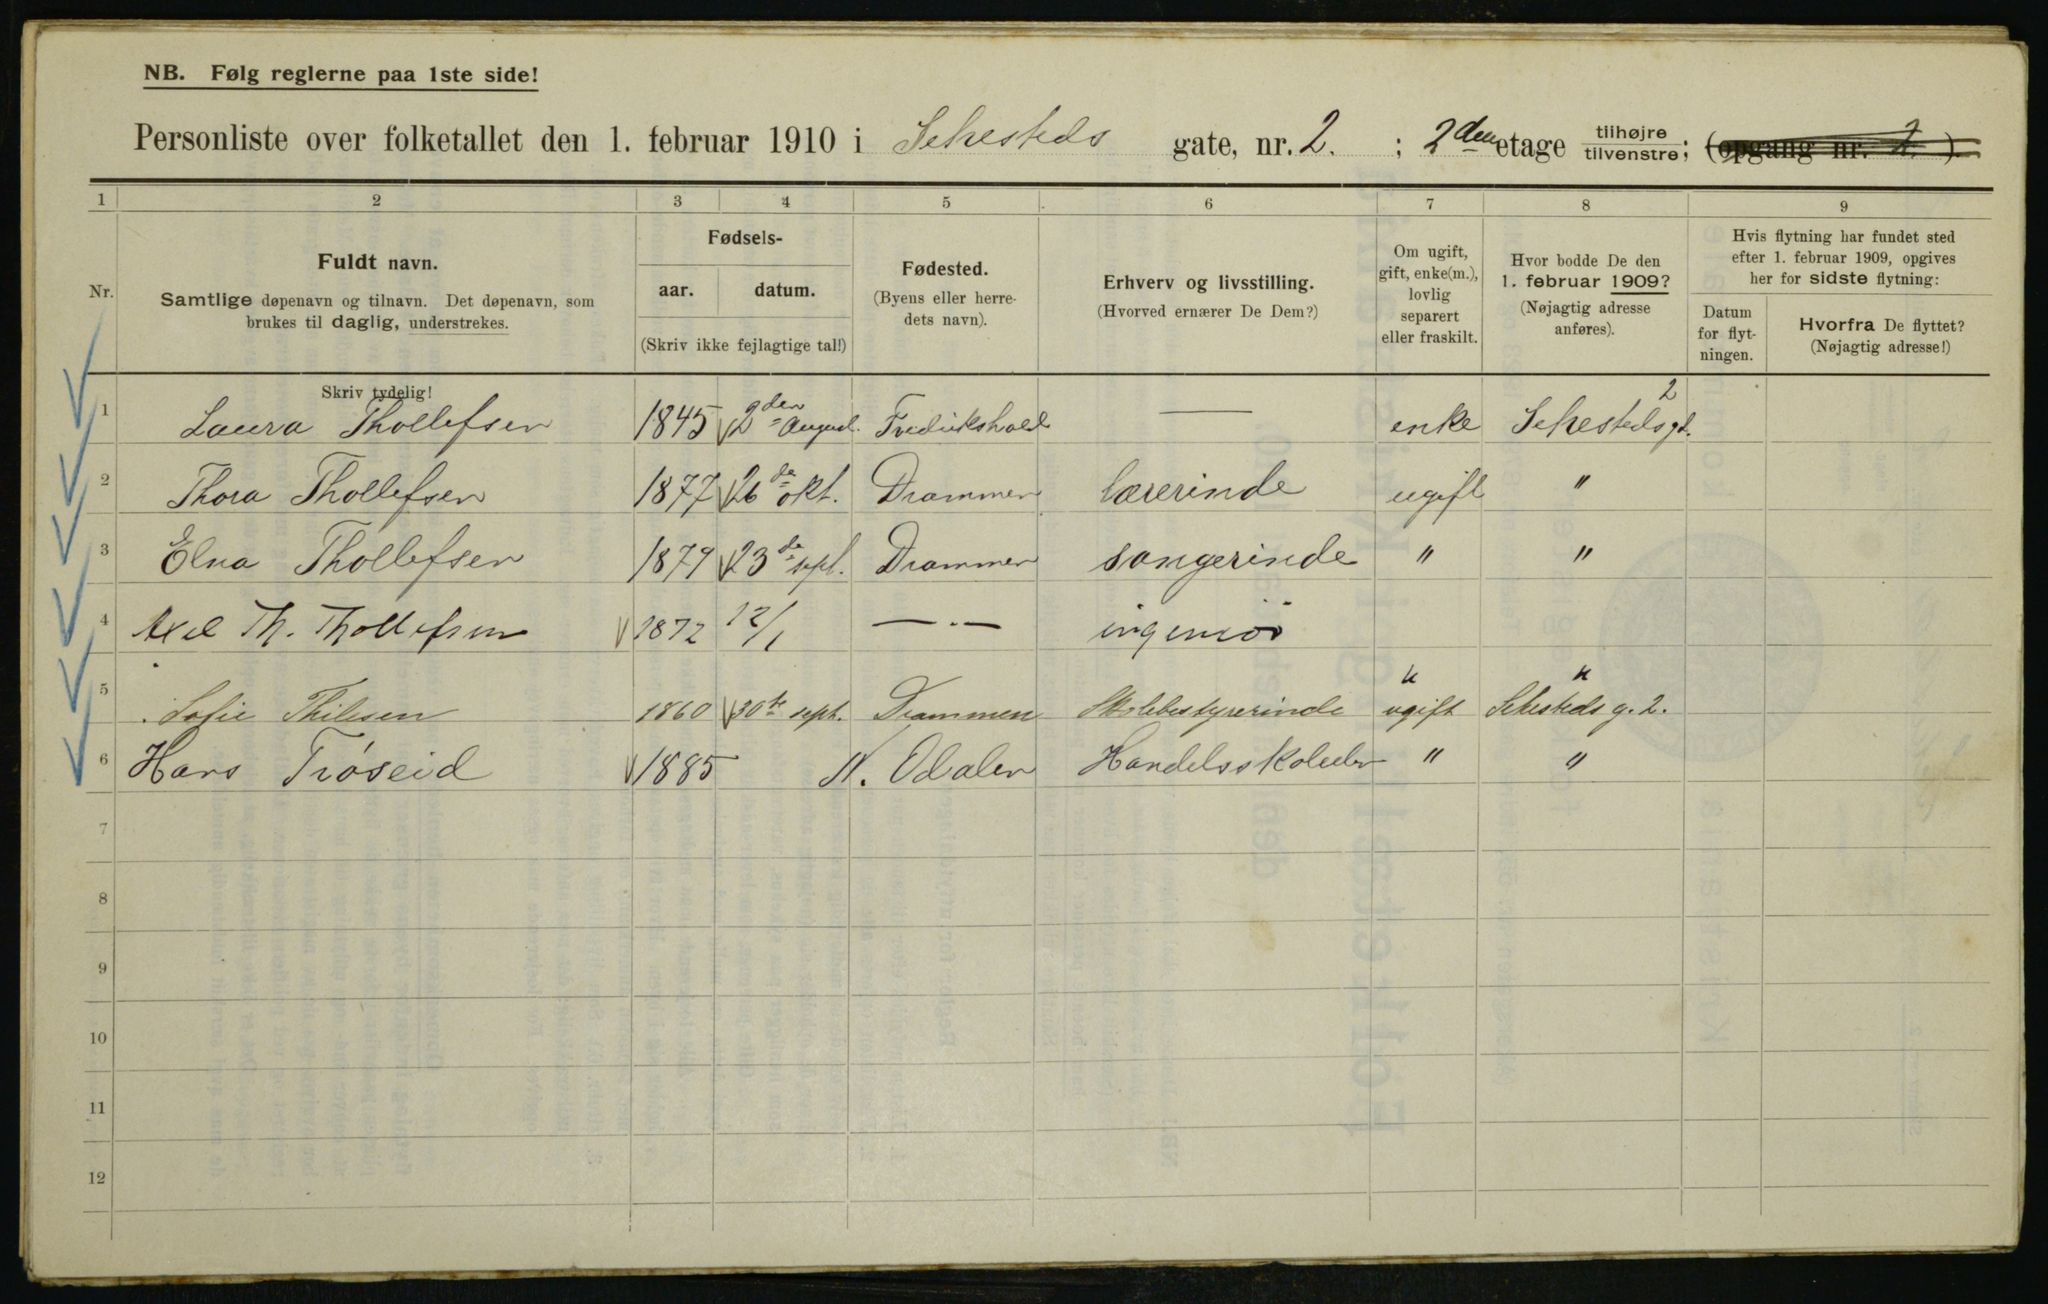 NB. Følg reglerne paa 1ste side!
Personliste over folketallet den 1. februar 1910 i Sehesteds gate, nr. 2. ; 2den etage tilhøjre / tilvenstre; (opgang nr. 2. ).
1 2 3 4 5 6 7 8 9
Nr.
Fuldt navn.
Samtlige døpenavn og tilnavn. Det døpenavn, som
brukes til daglig, understrekes.
Fødsels-
aar. datum.
(Skriv ikke fejlagtige tal!)
Fødested.
(Byens eller herre-
dets navn).
Erhverv og livsstilling.
(Hvorved ernærer De Dem?)
Om ugift,
gift, enke(m.),
lovlig
separert
eller fraskilt.
Hvor bodde De den
1. februar 1909?
(Nøjagtig adresse
anføres).
Hvis flytning har fundet sted
efter 1. februar 1909, opgives
her for sidste flytning:
Datum
for flyt-
ningen.
Hvorfra De flyttet?
(Nøjagtig adresse!)
Skriv tydelig!
1 Laura Thollefsen 1845 2den August. Fredrikshald — enke Sehestedsgt. 2
2 Thora Thollefsen 1877 26de okt. Drammen lærerinde ugift "
3 Elna Thollefsen 1879 23de sept. Drammen sangerinde " "
4 Axel Th. Thollefsen 1872 12/1 —"— ingeniør " "
5 Sofie Thilesen 1860 30te sept. Drammen Skolebestyrerinde ugift Sehesteds g. 2.
6 Hans Trøseid 1885 N. Odalen Handelsskoleelev " "
7
8
9
10
11
12